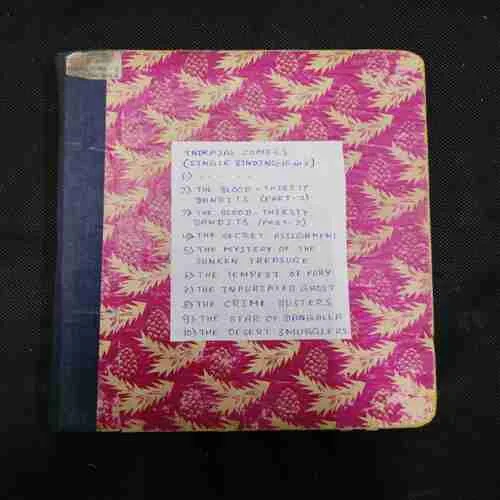 INDRAJAL COMICS
(SINGLE BINDING
1) ......
2) THE BLOOD-THIRSTY
BANDITS (PART-2)
3) THE BLOOD-THIRSTY
BANDITS (PART-3)
4) THE SECRET ASSIGNMENT
5) THE MYSTERY OF THE
SUNKEN TREASURE
6) THE TEMPEST OF FURY
7) THE INFURIATED GHOST
8) THE CRIME BUSTERS
9) THE STAR OF BANGALLA
10) THE DESERT SMUGGLERS